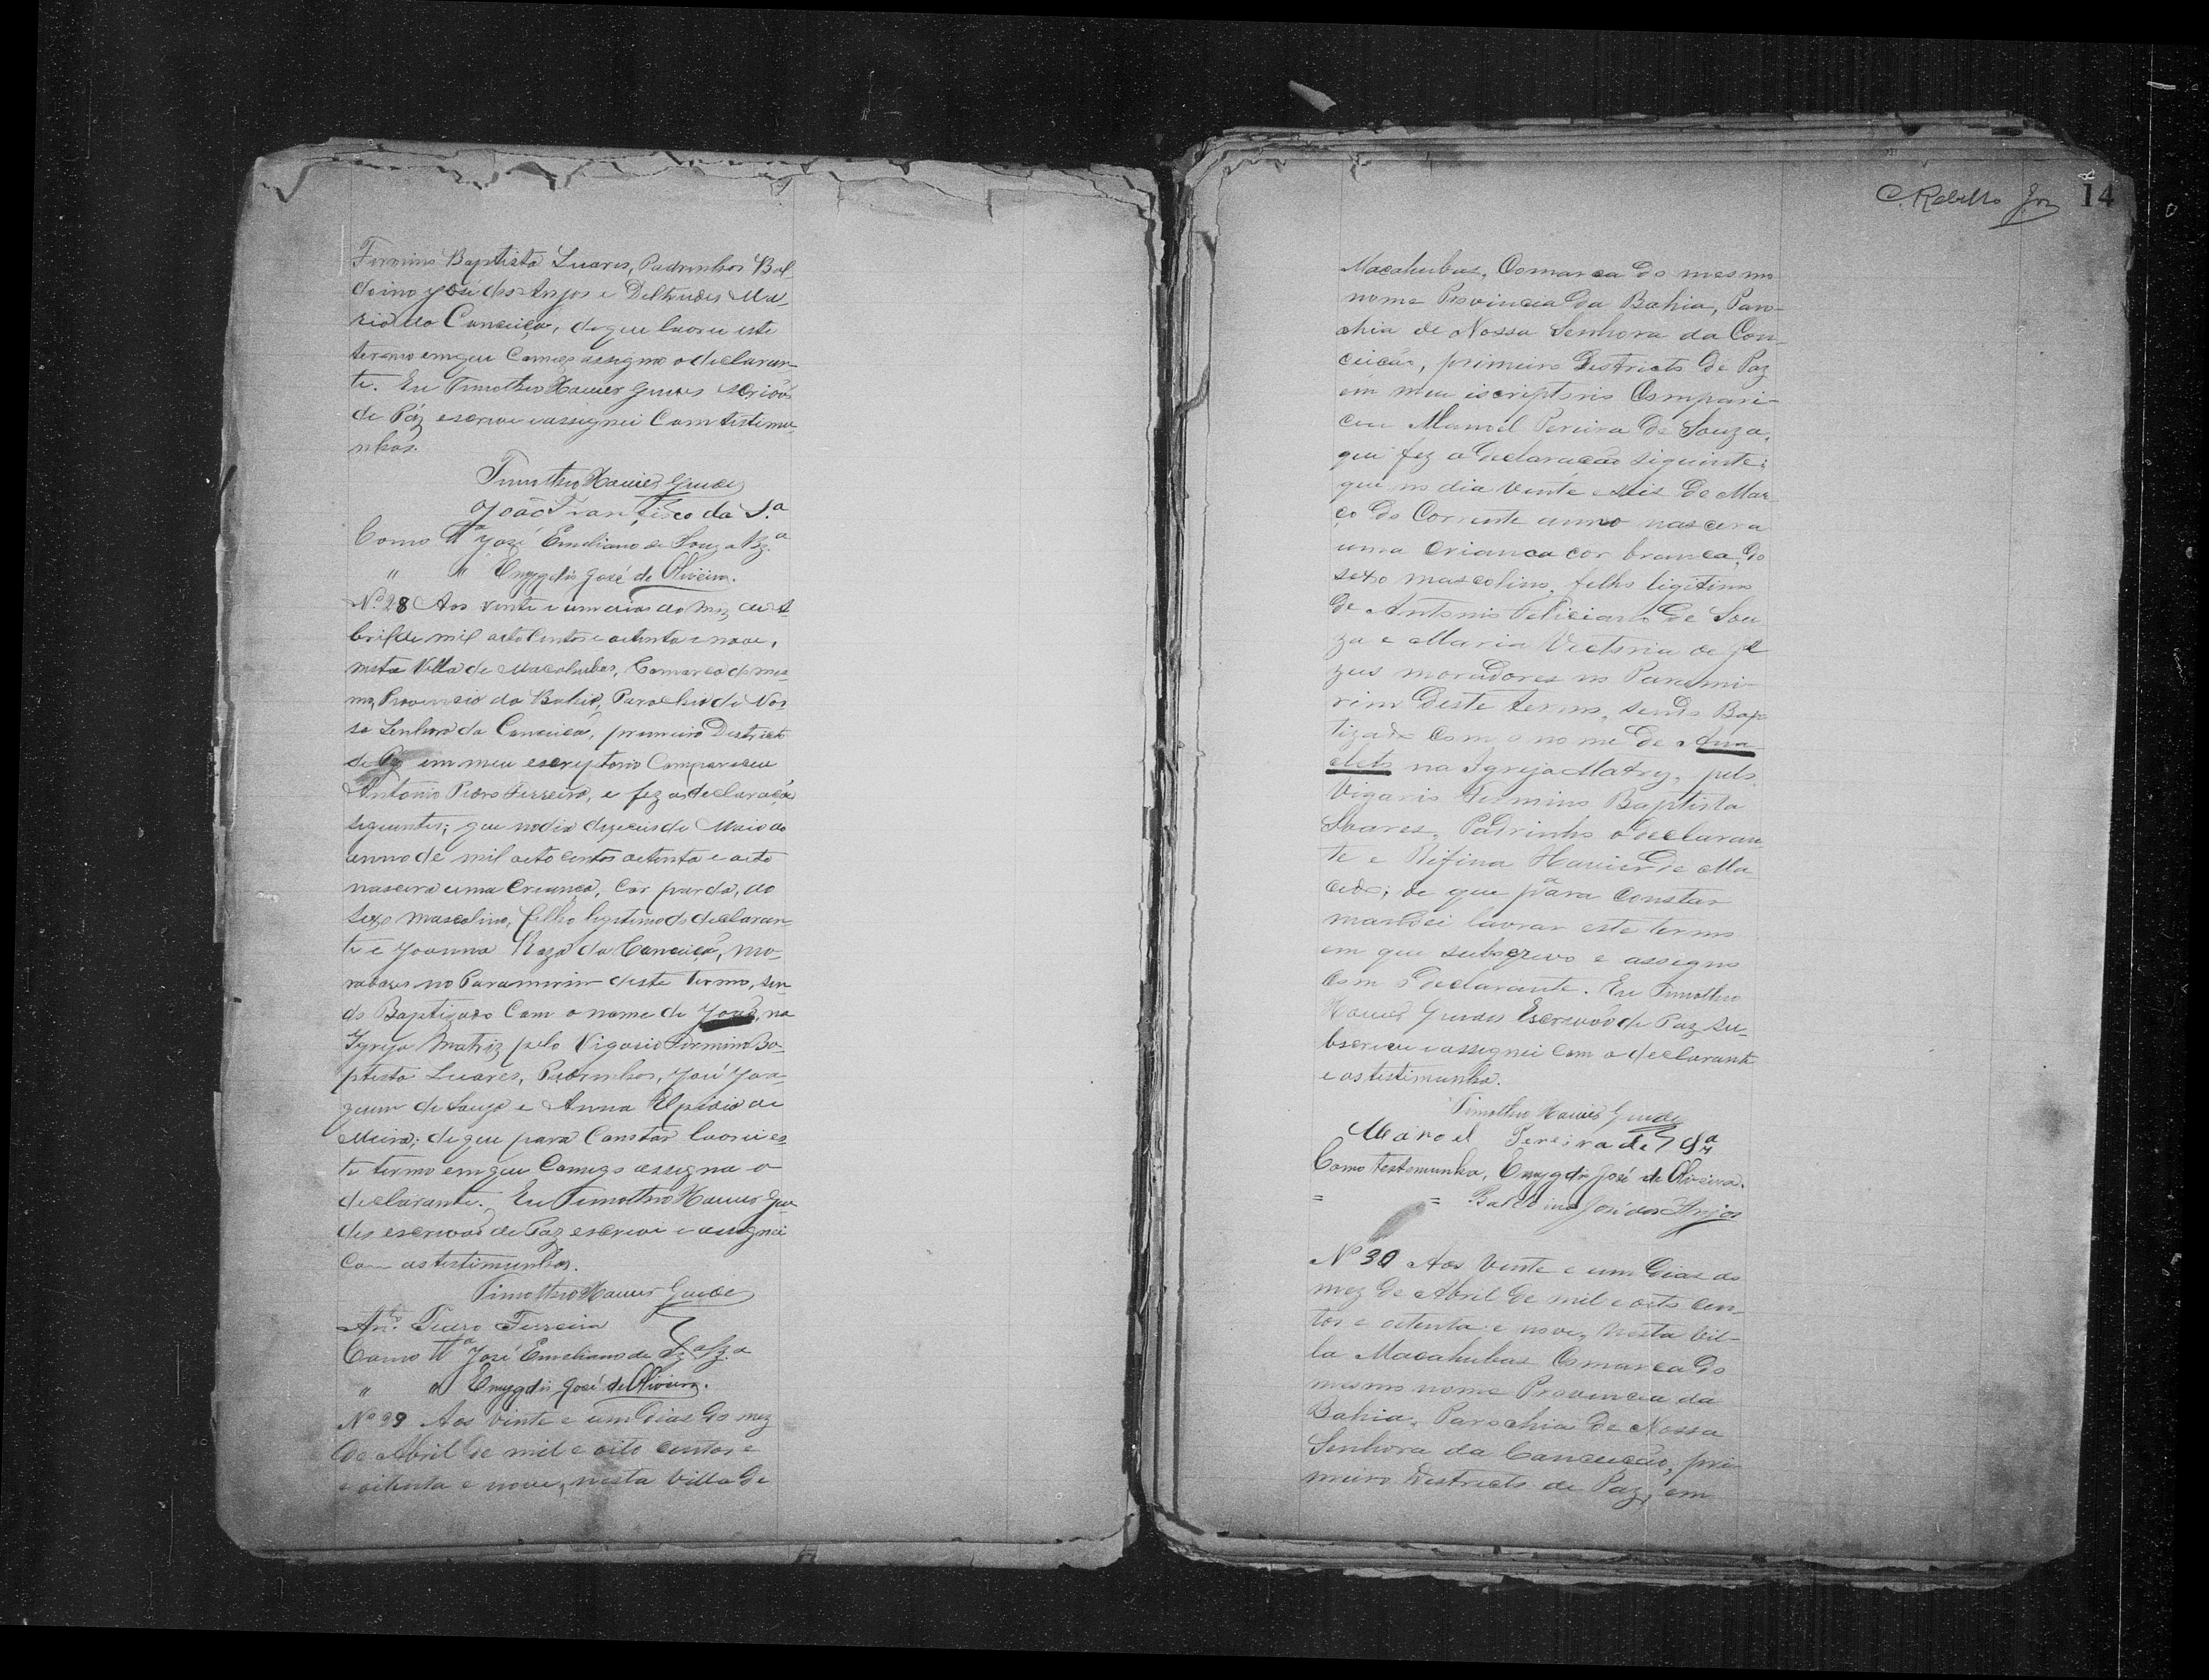 Firmino Baptista Suares, Padrinhos Bal-
doino José dos Anjos e Deltrudes Ma-
ria da Conceiçã, de que lavrei este
termo em que Comigo assigna o declaran-
te. Eu Timotheo Xavier Guedes scrivão
de Páz escrevi e assignei Com testimu-
nhas.
Timotheo Xavier Guedes
João Francisco da Sª
Como tª José Emeliano de Souza
" " Emygdio José de Oliveira.
Nº 28 Aos vente e um dias do mez de A-
bril de mil oito Centos e oitenta e nove,
nesta Villa de Macahubas, Comarca do mes-
mo, Provincia da Bahia, Parochia de Nos-
sa Senhora da Conceicã, primeiro Destricto
de Paz em meu escriptorio Compareceu
Antonio Pedro Ferreira, e fez as declaracã
seguintes; que no dia dezeceis de Maio do
anno de mil oito centos oitenta e oito
nascera uma Criança, Côr parda, do
sexo Mascolino, filho ligitimo do declaran-
te e Joanna Roza da Conceiçã, mo-
radores no Paramirim deste Termo, sen-
do Baptizado Com o nome de José, na
Igreja Matriz pelo Vigario Firmino Ba-
ptista Suares, Padrinhos, José Joa-
quim de Souza e Anna Elpidia de
Meira; de que para Constar lavrei es-
te termo em que Comigo assigna o
declarante. Eu Timotheo Xavier Gue-
des escrivão de Paz escrevi e assignei
Com as testimunhas.
Timotheo Xavier Guedes
Antº Pedro Ferreira
Como tª José Emeliano de Sza
" " Emygdio José de Oliveira.
Nº 29 Aos vinte e um dias do mez
de Abril de mil e oito centos e
e oitenta e nove, nesta Villa de
C. Rabello Jor 14
Macahubas, Comarca do mesmo
nome Provincia da Bahia, Paro-
chia de Nossa Senhora da Con-
ceicão, primeiro Destricto de Paz
em meu escriptorio Compare-
ceu Manoel Pereira de Souza,
que fez a declaracão siguinte:
que no dia vente e seis de Mar-
ço do Corrente anno nascera
uma crianca cor branca, do
sexo mascolino, filho ligitimo
de Antonio Feliciano de Sou-
za e Maria Victoria de Je-
zus moradores no Parami-
rim deste termo, sendo Bap-
tizado com o nome de Ana
cleto na Igreja Matriz, pelo
Vigario Firmino Baptista
Soares, Padrinho o declaran-
te e Rifina Xavier de Ma
cedo; de que para constar
mandei lavrar este termo
em que subscrevo e assigno
com o declarante. Eu Timotheo
Xavier Guedes Escrivão de Paz su-
bscrevi e assignei Com o declarante
e as testimunha.
Timotheo Xavier Guedes
Manoel Pereira de Sª
Como testemunha, Emygdio José de Oliveira.
= = Baldoino José dos Anjos
Nº 30 Aos vinte e um dias do
mez de Abril de mil e oito cen-
tos e oitenta e nove, nesta vil-
la Macahubas Comarca do
mesmo nome Provincia da
Bahia, Parochia de Nossa
Senhora da Conceicão, pri-
meiro Destricto de Paz, em